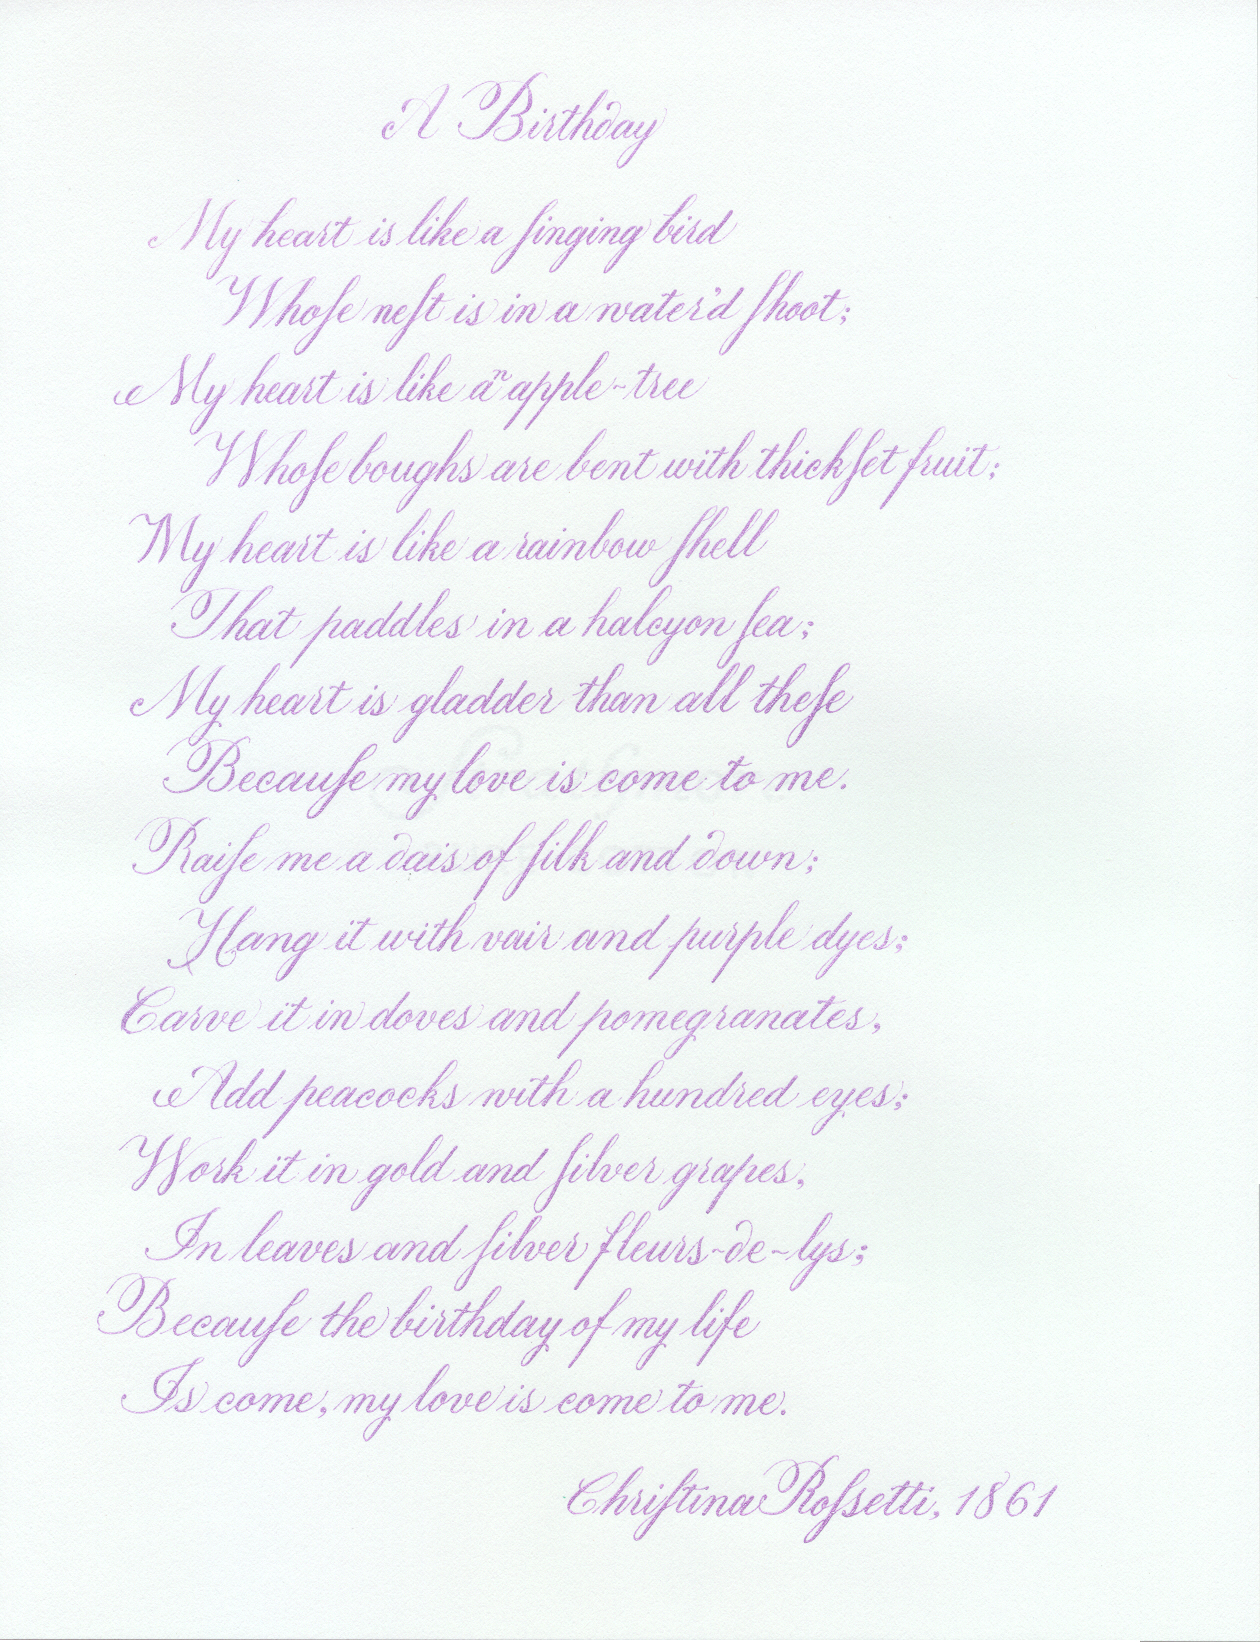 A Birthday
My heart is like a ſinging bird
Whoſe neſt is in a water'd ſhoot;
My heart is like aⁿ apple-tree
Whoſe boughs are bent with thickſet fruit;
My heart is like a rainbow ſhell
That paddles in a halcyon ſea;
My heart is gladder than all theſe
Becauſe my love is come to me.
Raiſe me a dais of ſilk and down;
Hang it with vair and purple dyes;
Carve it in doves and pomegranates,
Add peacocks with a hundred eyes;
Work it in gold and ſilver grapes,
In leaves and ſilver fleurs-de-lys;
Becauſe the birthday of my life
Is come, my love is come to me.
Chriſtina Roſsetti, 1861